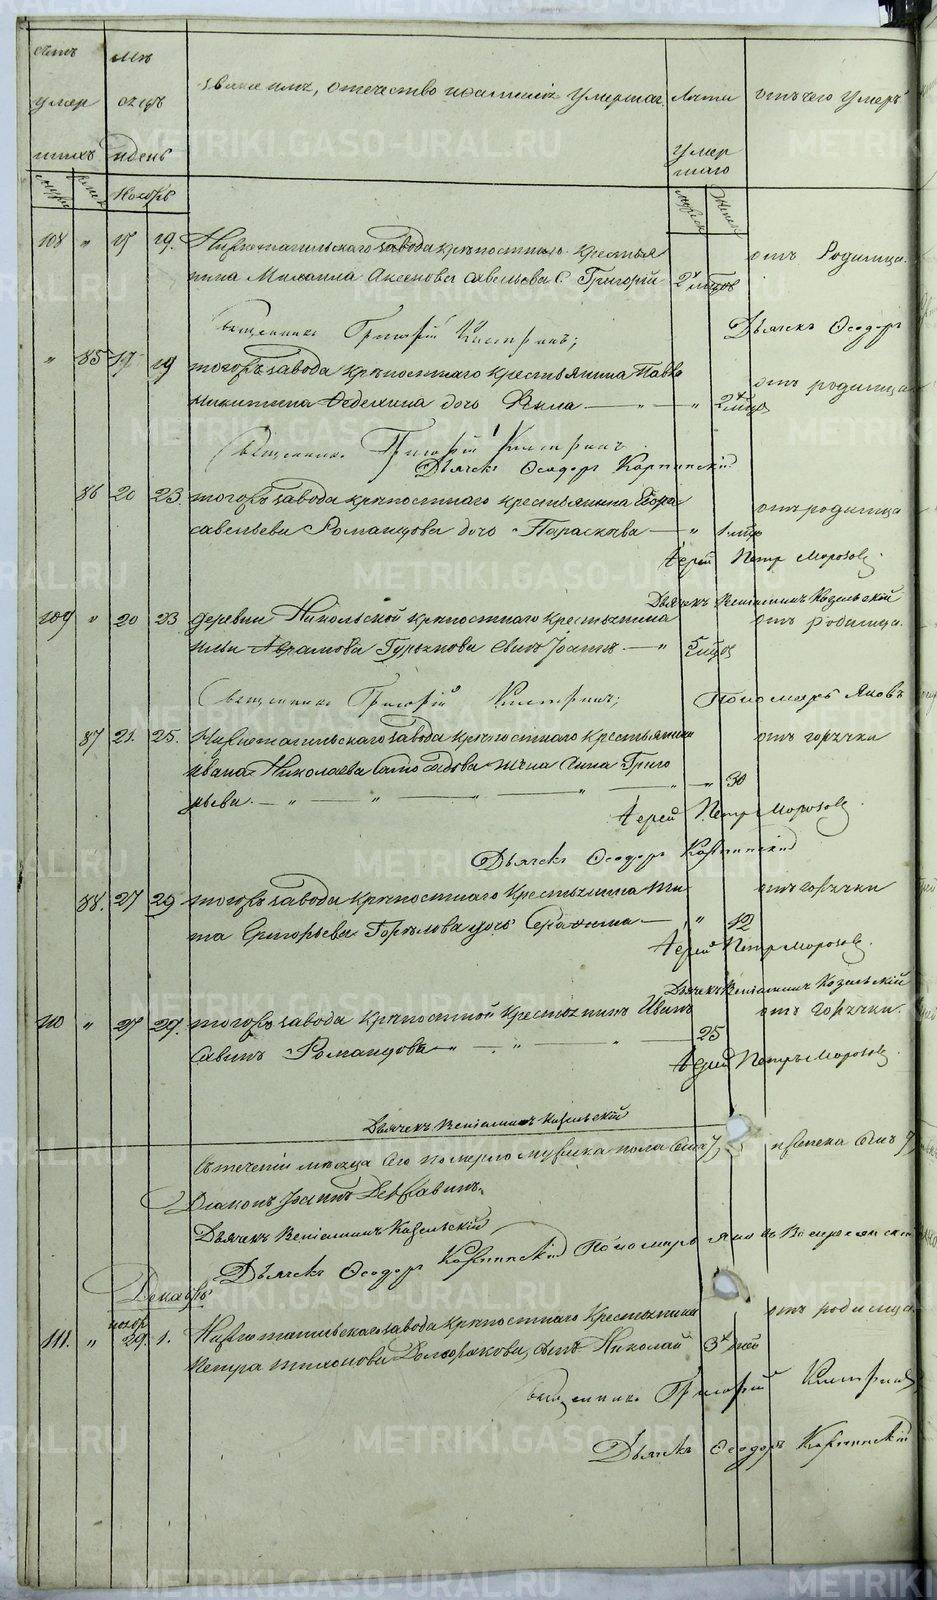 счетъ умершихъ
мѣсяцъ и день
званіе имя, отечество и фамилія умершаго
лѣта умершаго
отъ чего умеръ
Ноябрь
108 „ 17 19. Нижнетагильскаго завода крѣпостнаго крестья
нина Михаила Аксенова Савельева с. Григорій 2хъ мѣсцовъ отъ родимца.
Священникъ Григорій
Дьячекъ Ѳеодоръ
„ 85 17 19 тогожъ завода крѣпостнаго крестьянина Павла
Никитина дочь Ѳекла „ 2хъ мѣсц отъ родимца
Священникъ Григорій
Дьячекъ Ѳеодоръ Карпинскій
86 20 23. тогожъ завода крѣпостнаго крестьянина Егора
Савельева Романцова дочь Параскева „ 1 мѣсц отъ родимца
Іерей Петръ Морозовъ.
Дьячекъ Веніаминъ Козельскій
109 „ 20 23 деревни Никольской крѣпостнаго крестьянина
Ильи Абрамова сынъ Іоаннъ „ 5 мѣсцовъ отъ родимца.
Священникъ Григорій
Пономарь Яковъ
87 21. 25. Нижнетагильскаго завода крѣпостнаго крестьянина
Ивана Николаева жена Анна Григо
рьева „ „ „ 30 отъ горячки
Іерей Петръ Морозовъ
Дьячекъ Ѳеодоръ Карпинскій
88. 27 29 тогожъ завода крѣпостнаго крестьянина Ти
та Григорьева Горѣлова дочь „ 12 отъ горячки
Іерей Петръ Морозовъ.
Дьячекъ Веніаминъ Козельскій
110 „ 27 29. тогожъ завода крѣпостной крестьянинъ Иванъ
Савинъ Романцовъ „ „ 25 отъ горячки.
Іерей Петръ Морозовъ.
Дьячекъ Веніаминъ Козельскій
Въ теченіи мѣсяца сего померло мужеска пола
Діаконъ Іоаннъ
Дьячекъ Веніаминъ Козельскій
Дьячекъ Ѳеодоръ Карпинскій Пономарь
Декабрь
нояб.
111. „ 29. 1. Нижнетагильскаго завода крѣпостнаго крестьянина
Петра Тихонова сынъ Николай 3хъ дней отъ родимца
Священникъ Григорій
Дьячекъ Ѳеодоръ Карпинскій
METRIKI.GASO-URAL.RU